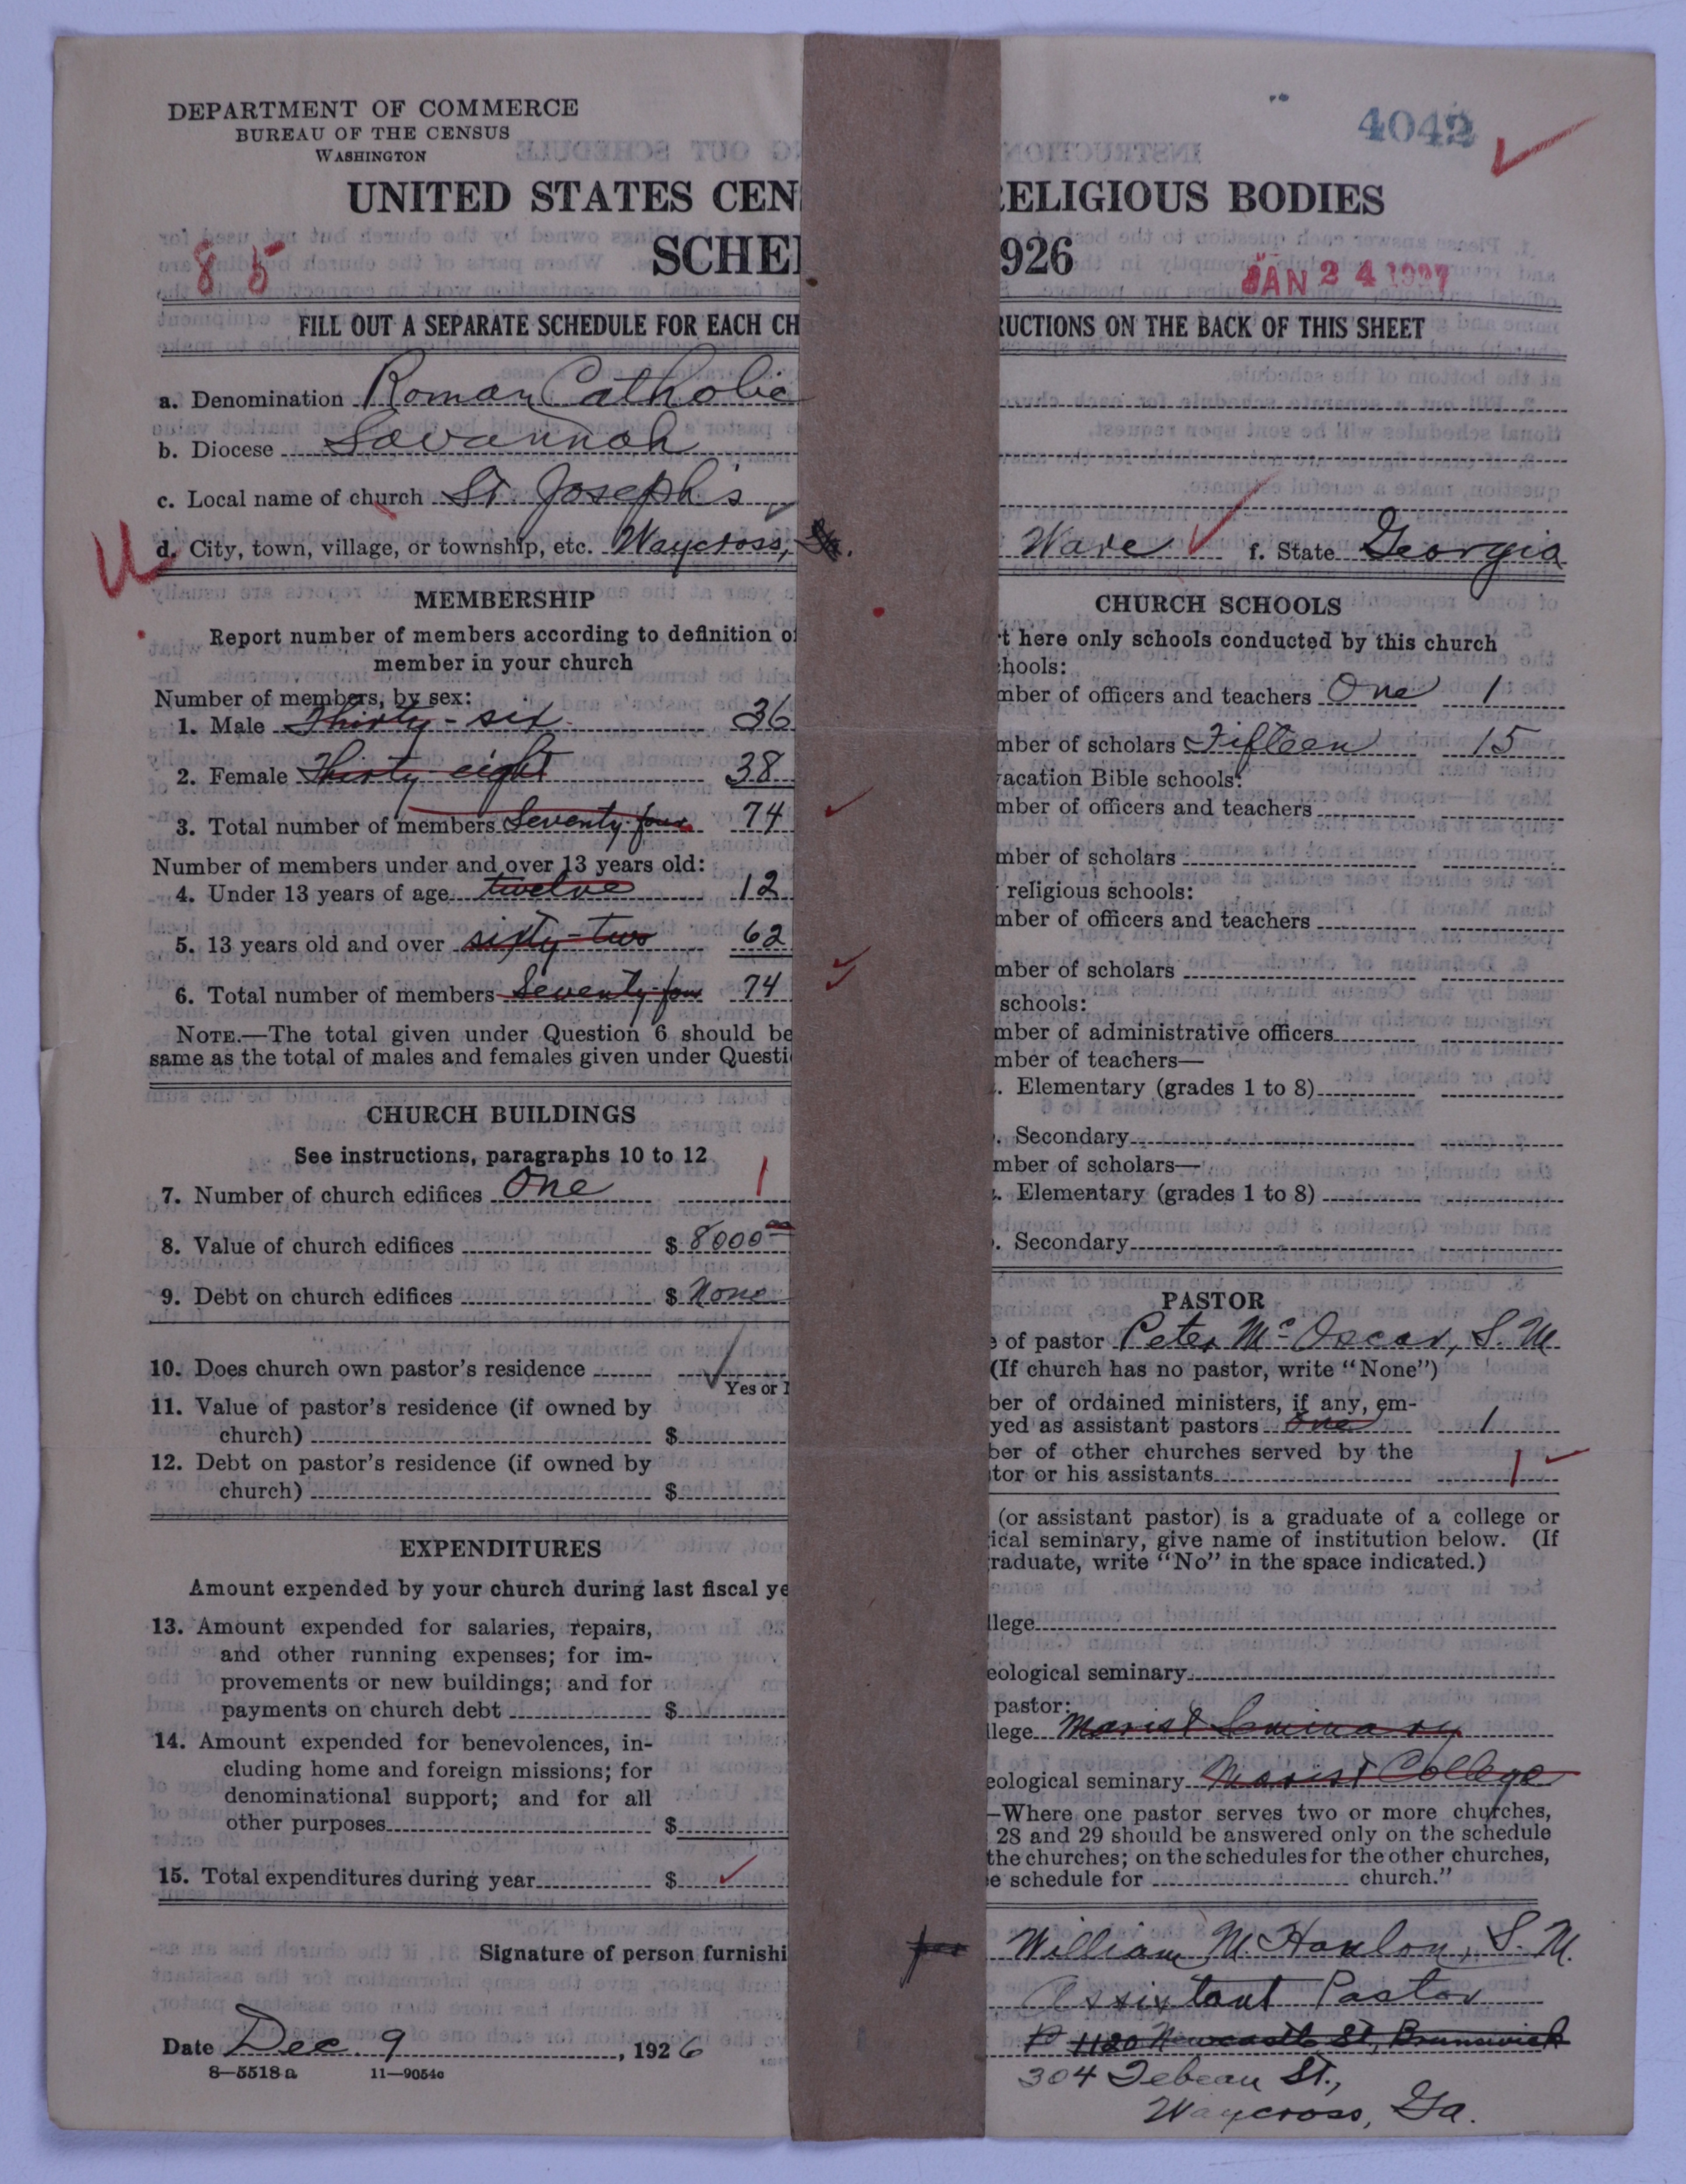 DEPARTMENT OF COMMERCE
BUREAU OF THE CENSUS
WASHINGTON
4042
UNITED STATES CEN ELIGIOUS BODIES
85
SCHE 926
JAN 24 1927
FILL OUT A SEPARATE SCHEDULE FOR EACH CH RUCTIONS ON THE BACK OF THIS SHEET
a. Denomination Roman Catholic
b. Diocese Savannah
c. Local name of church St. Joseph's
d. City, town, village, or township, etc. Waycross, Ware f. State Georgia
MEMBERSHIP
Report number of members according to definition o
member in your church
Number of members, by sex:
1. Male Thirty-six 36
2. Female Thirty-eight 38
3. Total number of members Seventy-four 74
Number of members under and over 13 years old:
4. Under 13 years of age twelve 12
5. 13 years old and over sixty-two 62
6. Total number of members Seventy-four 74
NOTE.—The total given under Question 6 should be
same as the total of males and females given under Questi
CHURCH BUILDINGS
See instructions, paragraphs 10 to 12
7. Number of church edifices One 1
8. Value of church edifices $ 8000
9. Debt on church edifices $ None
10. Does church own pastor's residence
Yes or
11. Value of pastor's residence (if owned by
church) $
12. Debt on pastor's residence (if owned by
church) $
EXPENDITURES
Amount expended by your church during last fiscal ye
13. Amount expended for salaries, repairs,
and other running expenses; for im-
provements or new buildings; and for
payments on church debt $
14. Amount expended for benevolences, in-
cluding home and foreign missions; for
denominational support; and for all
other purposes $
15. Total expenditures during year $
Signature of person furnishi
Date Dec. 9, 1926
8—5518a 11—9054c
CHURCH SCHOOLS
t here only schools conducted by this church
hools:
mber of officers and teachers One 1
mber of scholars Fifteen 15
acation Bible schools:
mber of officers and teachers
mber of scholars
religious schools:
mber of officers and teachers
mber of scholars
schools:
mber of administrative officers
mber of teachers—
. Elementary (grades 1 to 8)
. Secondary
mber of scholars—
. Elementary (grades 1 to 8)
. Secondary
PASTOR
e of pastor Peter McOscar, S.M.
(If church has no pastor, write "None")
ber of ordained ministers, if any, em-
yed as assistant pastors one 1
ber of other churches served by the
tor or his assistants 1
(or assistant pastor) is a graduate of a college or
ical seminary, give name of institution below. (If
raduate, write "No" in the space indicated.)
llege
eological seminary
pastor:
llege Marist Seminary
eological seminary Marist College
—Where one pastor serves two or more churches,
28 and 29 should be answered only on the schedule
the churches; on the schedules for the other churches,
e schedule for church."
per William M. Hanlon, S.M.
Assistant Pastor
1120 Newcastle St, Brunswick
304 Tebeau St.,
Waycross, Ga.